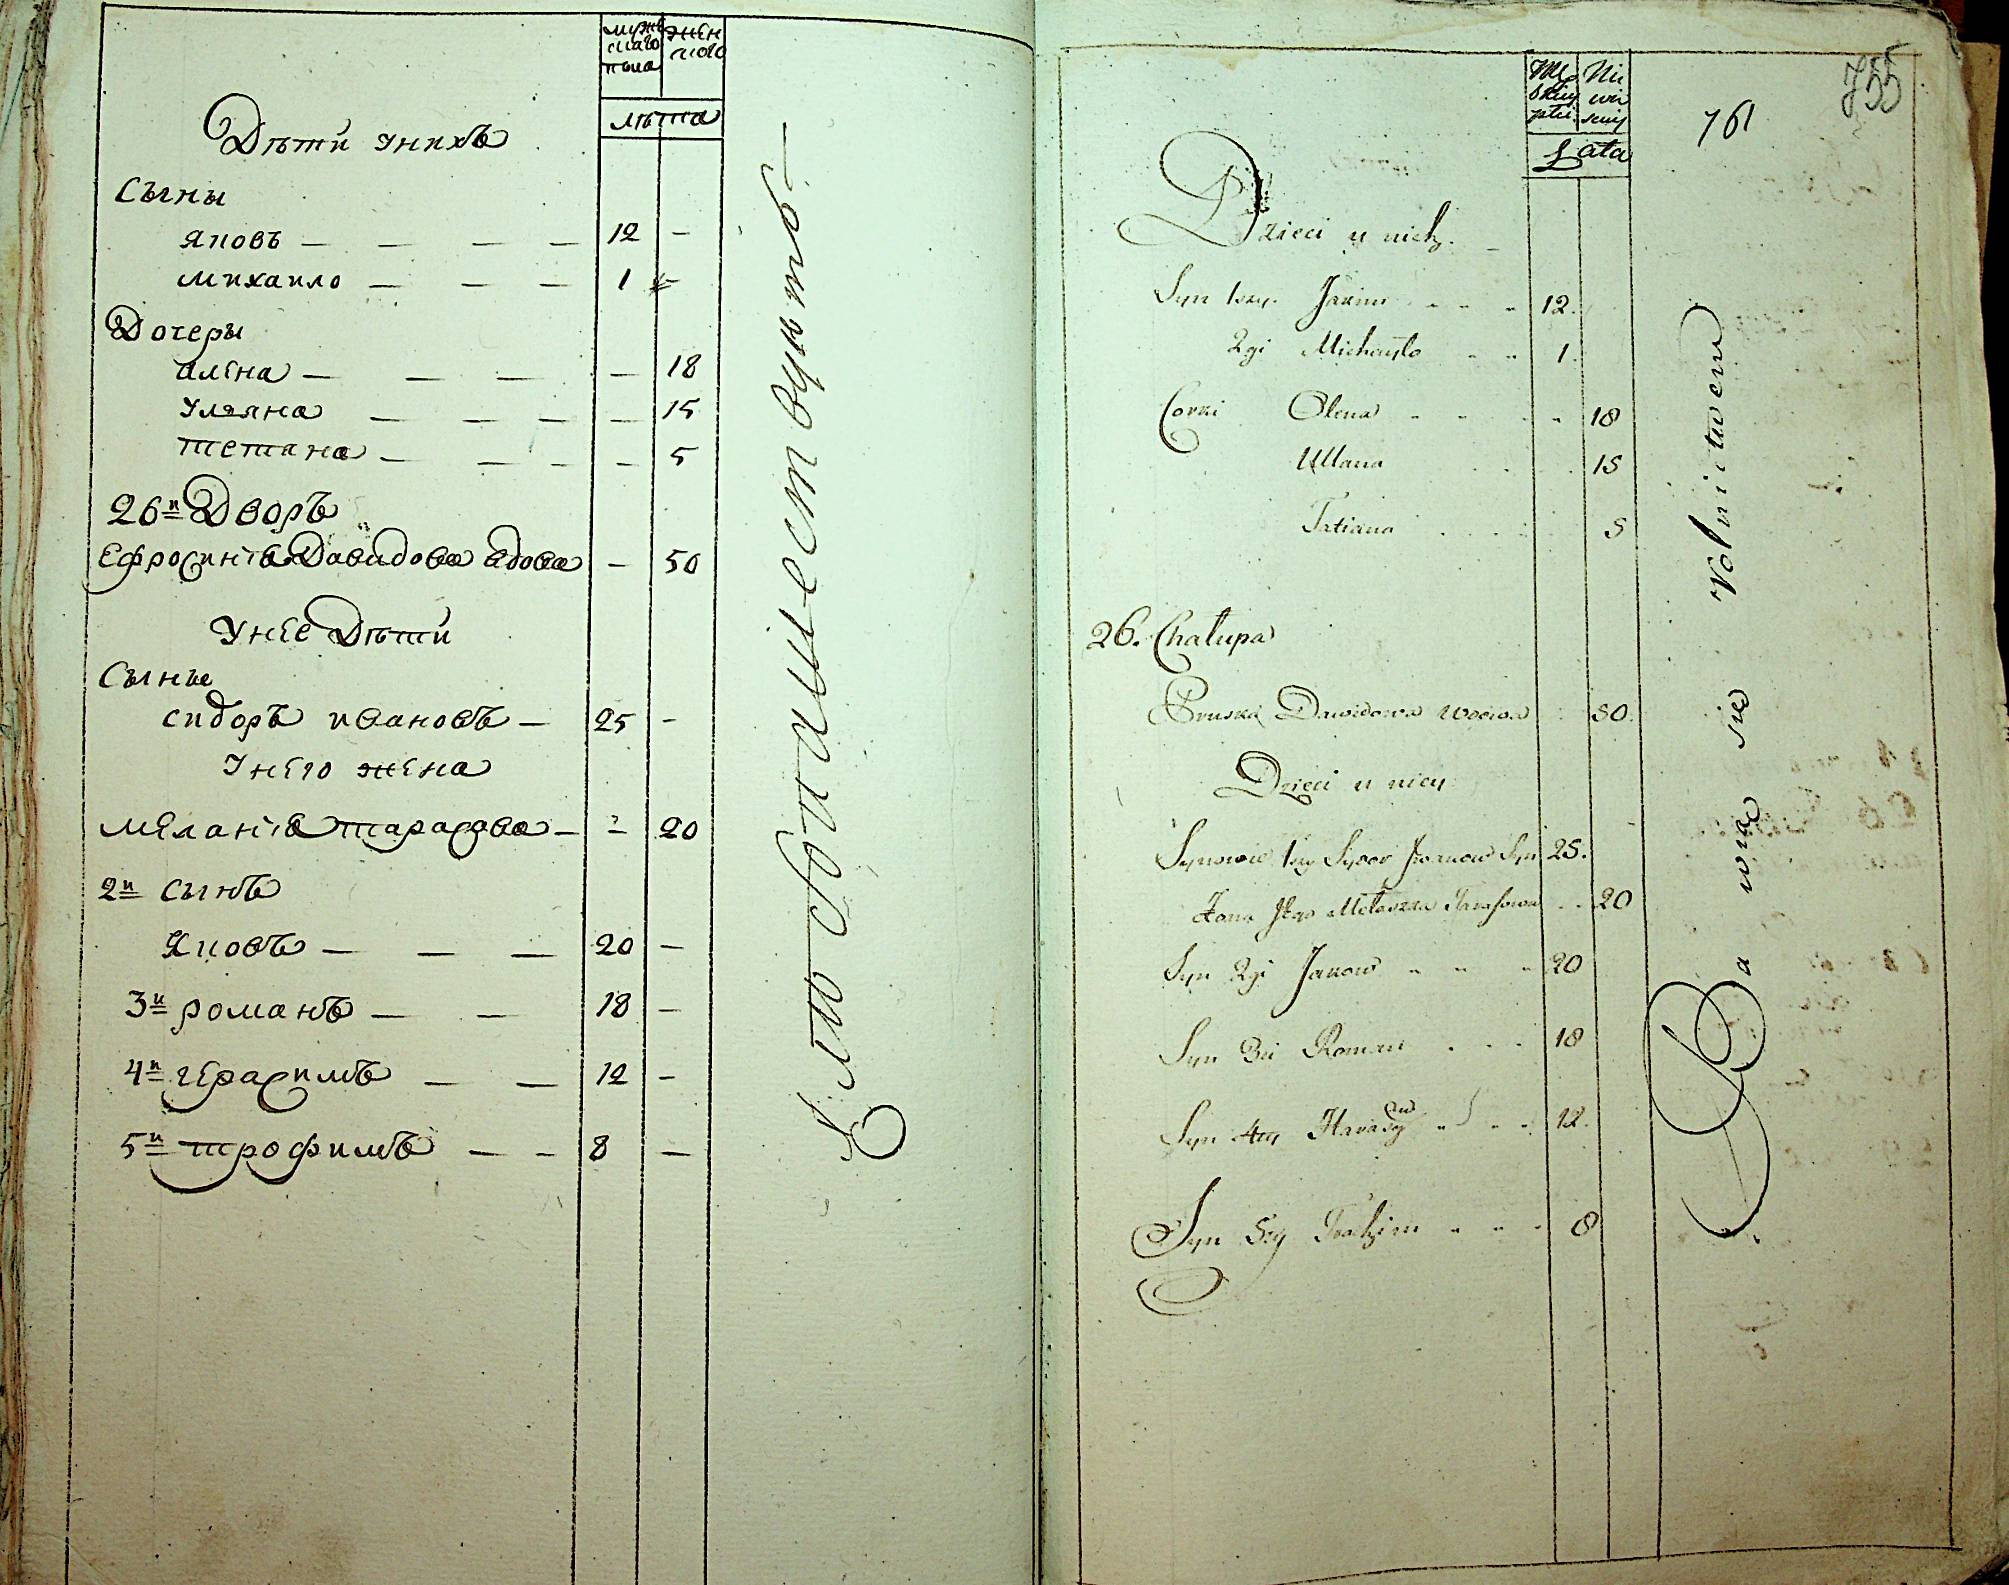 мужескаго пола
женскаго
лѣта
Дѣти унихъ
Сыны
яковъ — — — — 12 —
михаило — — — 1 —
Дочеры
алена — — — — 18
уляна — — — — 15
тетяна — — — — 5
26й Дворъ
Ефросинія Давидова вдова — 50
У неѣ Дѣти
Сыны
сидоръ ивановъ — 25 —
У него жена
меланія тарасова — — 20
2й сынъ
Яковъ — — — 20 —
3й романъ — — 18 —
4й герасимъ — — 12 —
5й трофимъ — — 8 —
хлѣбопашествуютъ —
755
761
Lata
Dzieci u nich.
Syn 1szy. 12.
2gi Michayło 1.
Corki Olena 18
Ullana 15
Tatiana 5
26. Chałupa
Dawidowa wdowa 50.
Dzieci u niey
Synowie 1szy Sydor Iwanow Syn 25.
Żona Jego Tarasowa 20
Syn 2gi Jakow 20
Syn 3ci Roman 18
Syn 4ty 12.
Syn 5ty 8
Bawia sie Rolnictwem